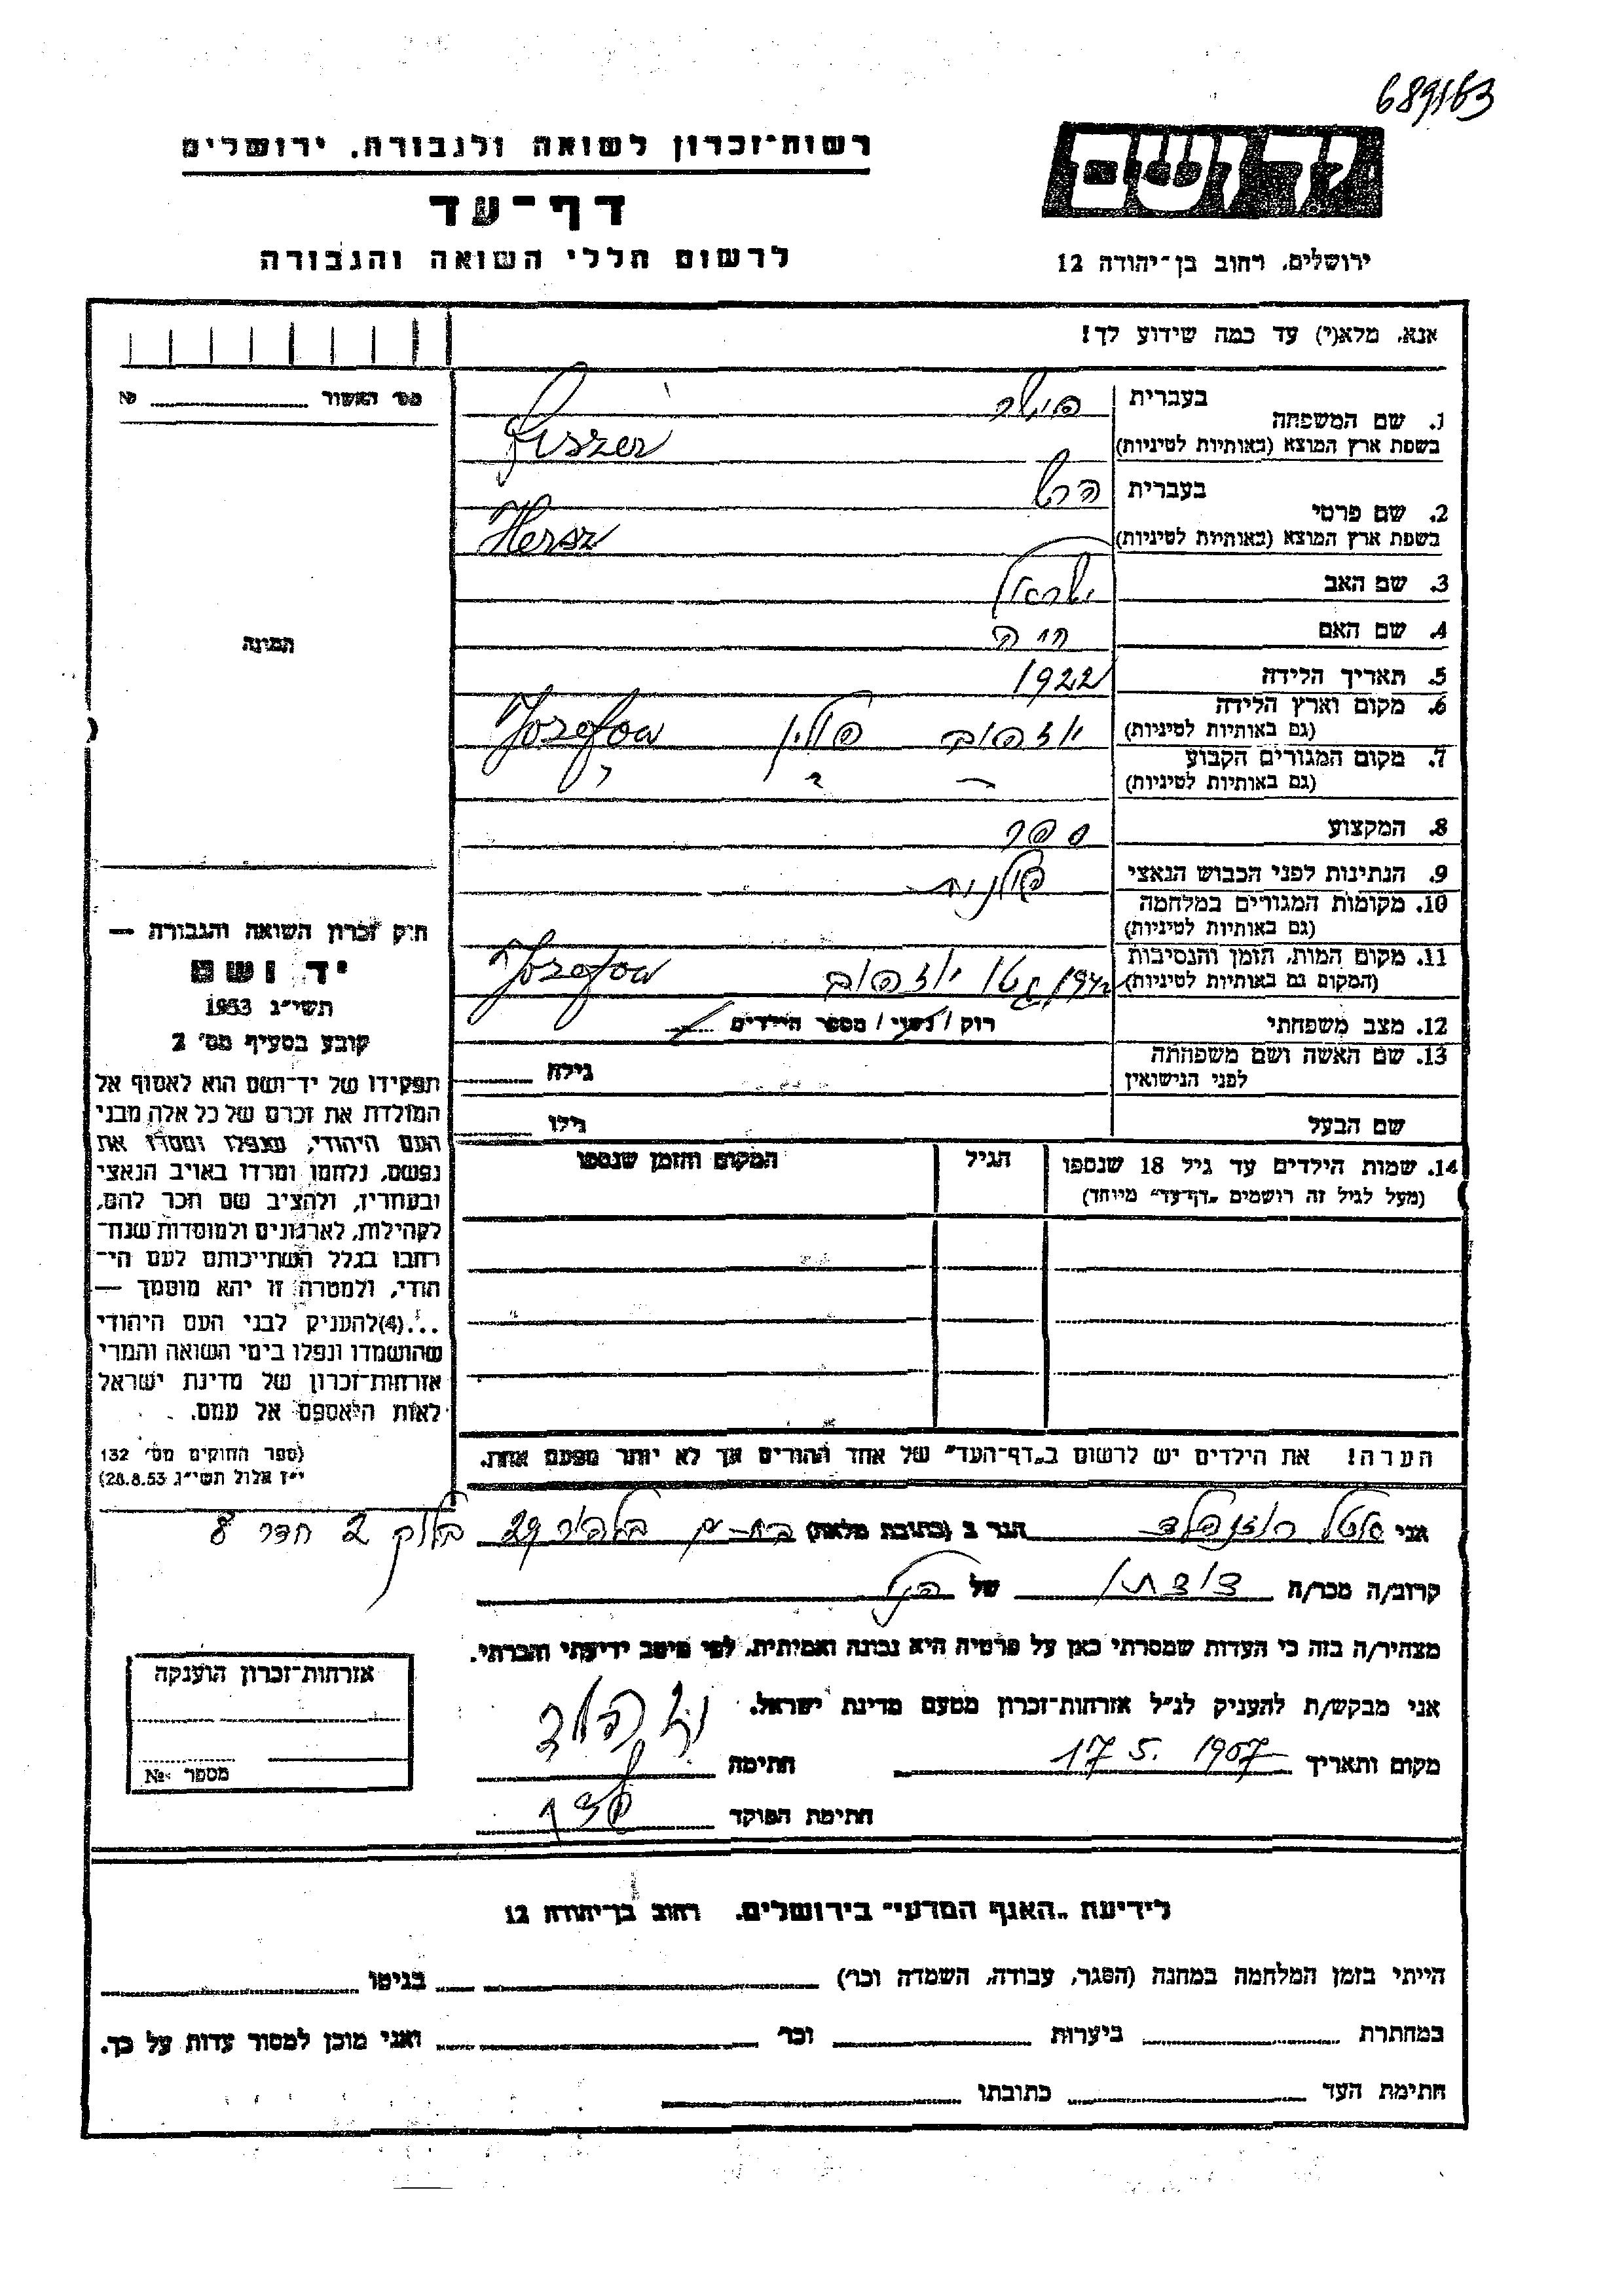 689/63
רשות-זכרון לשואה ולגבורה, ירושלים
יד ושם
דף-עד
לרשום חללי השואה והגבורה
ירושלים, רחוב בן-יהודה 12
אנא, מלא(י) עד כמה שידוע לך!
מס' האשור № 
1. שם המשפחה בעברית פישר
בשפת ארץ המוצא (באותיות לטיניות) Fiszer
2. שם פרטי בעברית הרש
בשפת ארץ המוצא (באותיות לטיניות) Hersz
3. שם האב ישראל
4. שם האם חיה
5. תאריך הלידה 1922
6. מקום וארץ הלידה (גם באותיות לטיניות) יוזפוב פולין Jozefow
7. מקום המגורים הקבוע (גם באותיות לטיניות)
8. המקצוע ספר
9. הנתינות לפני הכבוש הנאצי פולנית
10. מקומות המגורים במלחמה (גם באותיות לטיניות)
11. מקום המות, הזמן והנסיבות (המקום גם באותיות לטיניות) 1942 גטו יוזפוב Jozefow
12. מצב משפחתי רוק / נשוי / מספר הילדים
13. שם האשה ושם משפחתה לפני הנישואין גילה
שם הבעל גילו
14. שמות הילדים עד גיל 18 שנספו (מעל לגיל זה רושמים "דף-עד" מיוחד) הגיל המקום והזמן שנספו
הערה! את הילדים יש לרשום ב"דף-העד" של אחד ההורים אך לא יותר מפעם אחת.
התמונה
חוק זכרון השואה והגבורה —
יד ושם
תשי"ג 1953
קובע בסעיף מס' 2
תפקידו של יד-ושם הוא לאסוף אל
המולדת את זכרם של כל אלה מבני
העם היהודי, שנפלו ומסרו את
נפשם, נלחמו ומרדו באויב הנאצי
ובעוזריו, ולהציב שם וזכר להם,
לקהילות, לארגונים ולמוסדות שנח-
רבו בגלל השתייכותם לעם הי-
הודי, ולמטרה זו יהא מוסמך —
...(4)להעניק לבני העם היהודי
שהושמדו ונפלו בימי השואה והמרי
אזרחות-זכרון של מדינת ישראל
לאות היאספם אל עמם.
(ספר החוקים מס' 132
י"ז אלול תשי"ג 28.8.53)
אני רוזנפלד הגר ב (כתובת מלאה) בת-ים 29 בלוק 2 חדר 8
קרוב/ה מכר/ה דודתו של הנ"ל
מצהיר/ה בזה כי העדות שמסרתי כאן על פרטיה היא נכונה ואמיתית, לפי מיטב ידיעתי והכרתי.
אני מבקש/ת להעניק לנ"ל אזרחות-זכרון מטעם מדינת ישראל.
מקום ותאריך 17 5. 1957 חתימה
חתימת הפוקד
אזרחות-זכרון הוענקה
מספר №
לידיעת "האגף המדעי" בירושלים, רחוב בן-יהודה 12
הייתי בזמן המלחמה במחנה (הסגר, עבודה, השמדה וכו') בגיטו
במחתרת ביערות וכו' ואני מוכן למסור עדות על כך.
חתימת העד כתובתו